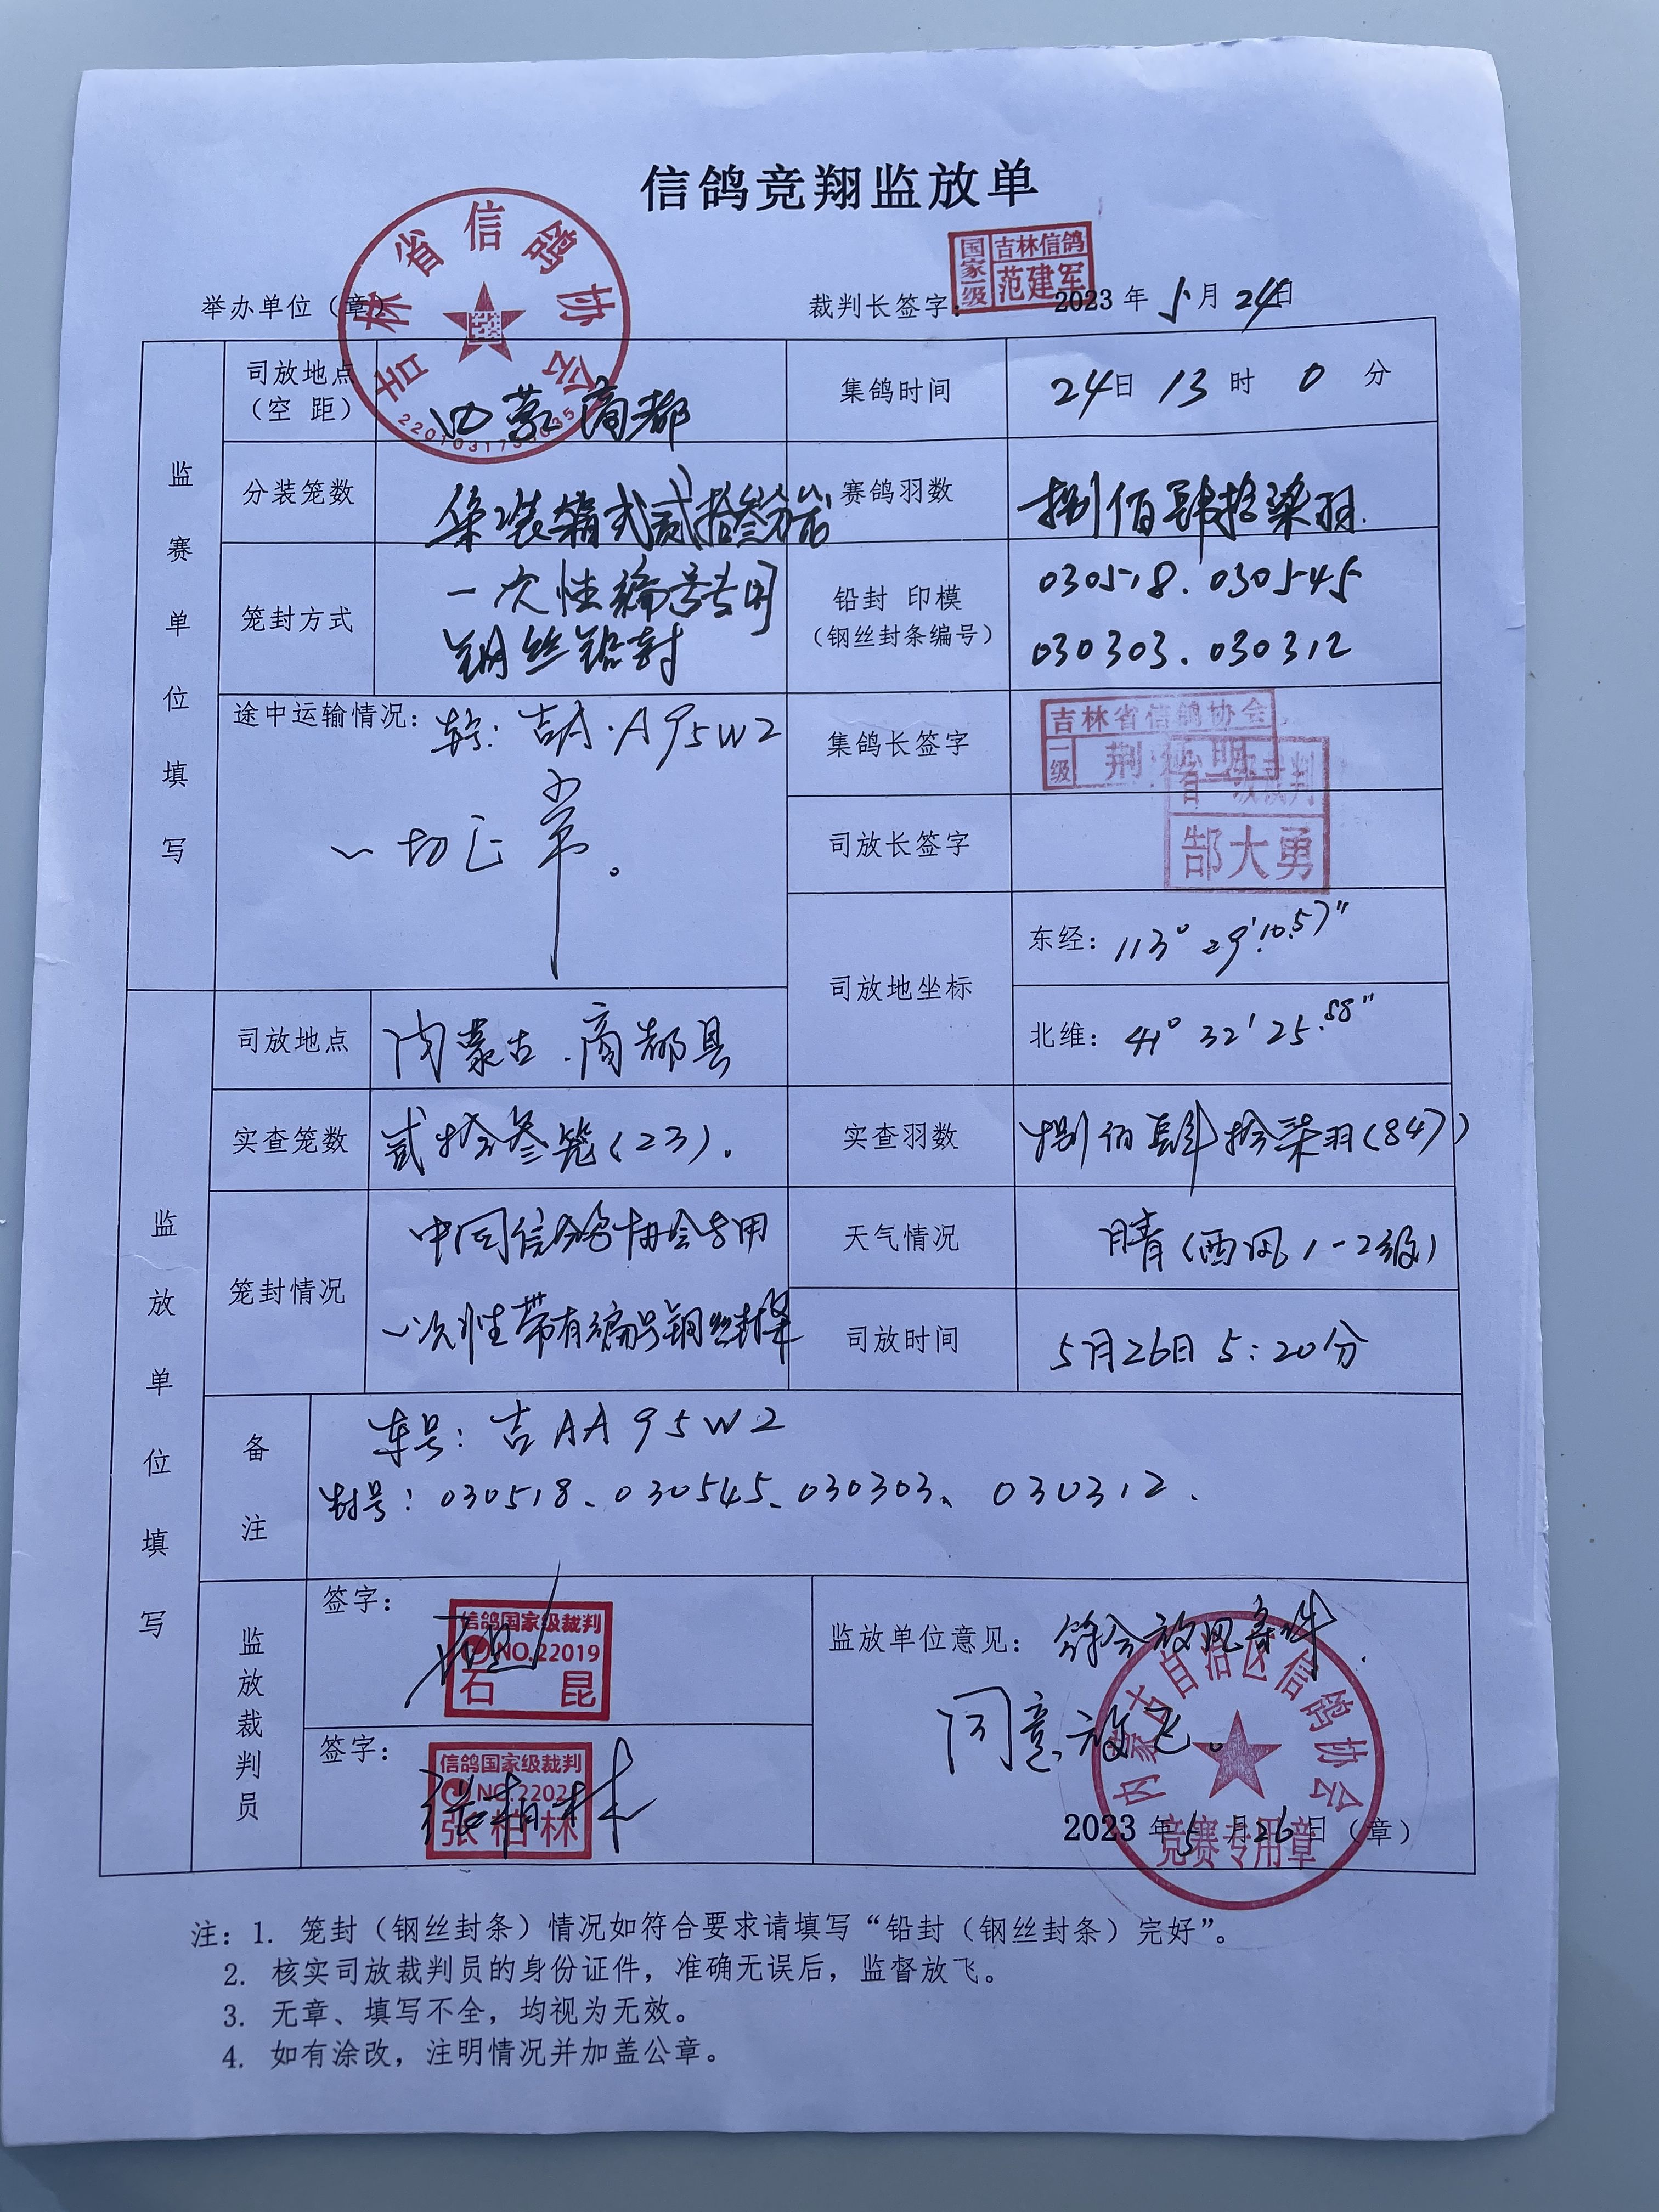 信鸽竞翔监放单
吉林省信鸽协会
国家一级
吉林信鸽
范建军
举办单位（章）
裁判长签字：
2023 年 5 月 24日
监赛单位填写
司放地点
（空 距）
内蒙 商都
集鸽时间
24日 13 时 0 分
分装笼数
集装箱式贰拾叁分笼
赛鸽羽数
捌佰肆拾柒羽.
笼封方式
一次性编号专用
钢丝铅封
铅封 印模
（钢丝封条编号）
030518. 030545
030303. 030312
途中运输情况：
车号: 吉A·A95W2
一切正常。
集鸽长签字
吉林省信鸽协会
一级
司放长签字
省一级裁判
郜大勇
司放地坐标
东经：113° 29′10.57″
北维：41° 32′ 25.88″
监放单位填写
司放地点
内蒙古.商都县
实查笼数
贰拾叁笼(23).
实查羽数
捌佰肆拾柒羽(847)
笼封情况
中国信鸽协会专用
一次性带有编号钢丝封条
天气情况
晴(西风1-2级)
司放时间
5月26日 5:20分
备注
车号: 吉AA95W2
封号: 030518、030545、030303、030312.
监放裁判员
签字：
信鸽国家级裁判
NO.22019
石昆
签字：
信鸽国家级裁判
张柏林
张柏林
监放单位意见：符合放飞条件.
同意放飞。
内蒙古自治区信鸽协会
竞赛专用章
2023 年 5 月 26 日（章）
注：1. 笼封（钢丝封条）情况如符合要求请填写“铅封（钢丝封条）完好”。
2. 核实司放裁判员的身份证件，准确无误后，监督放飞。
3. 无章、填写不全，均视为无效。
4. 如有涂改，注明情况并加盖公章。